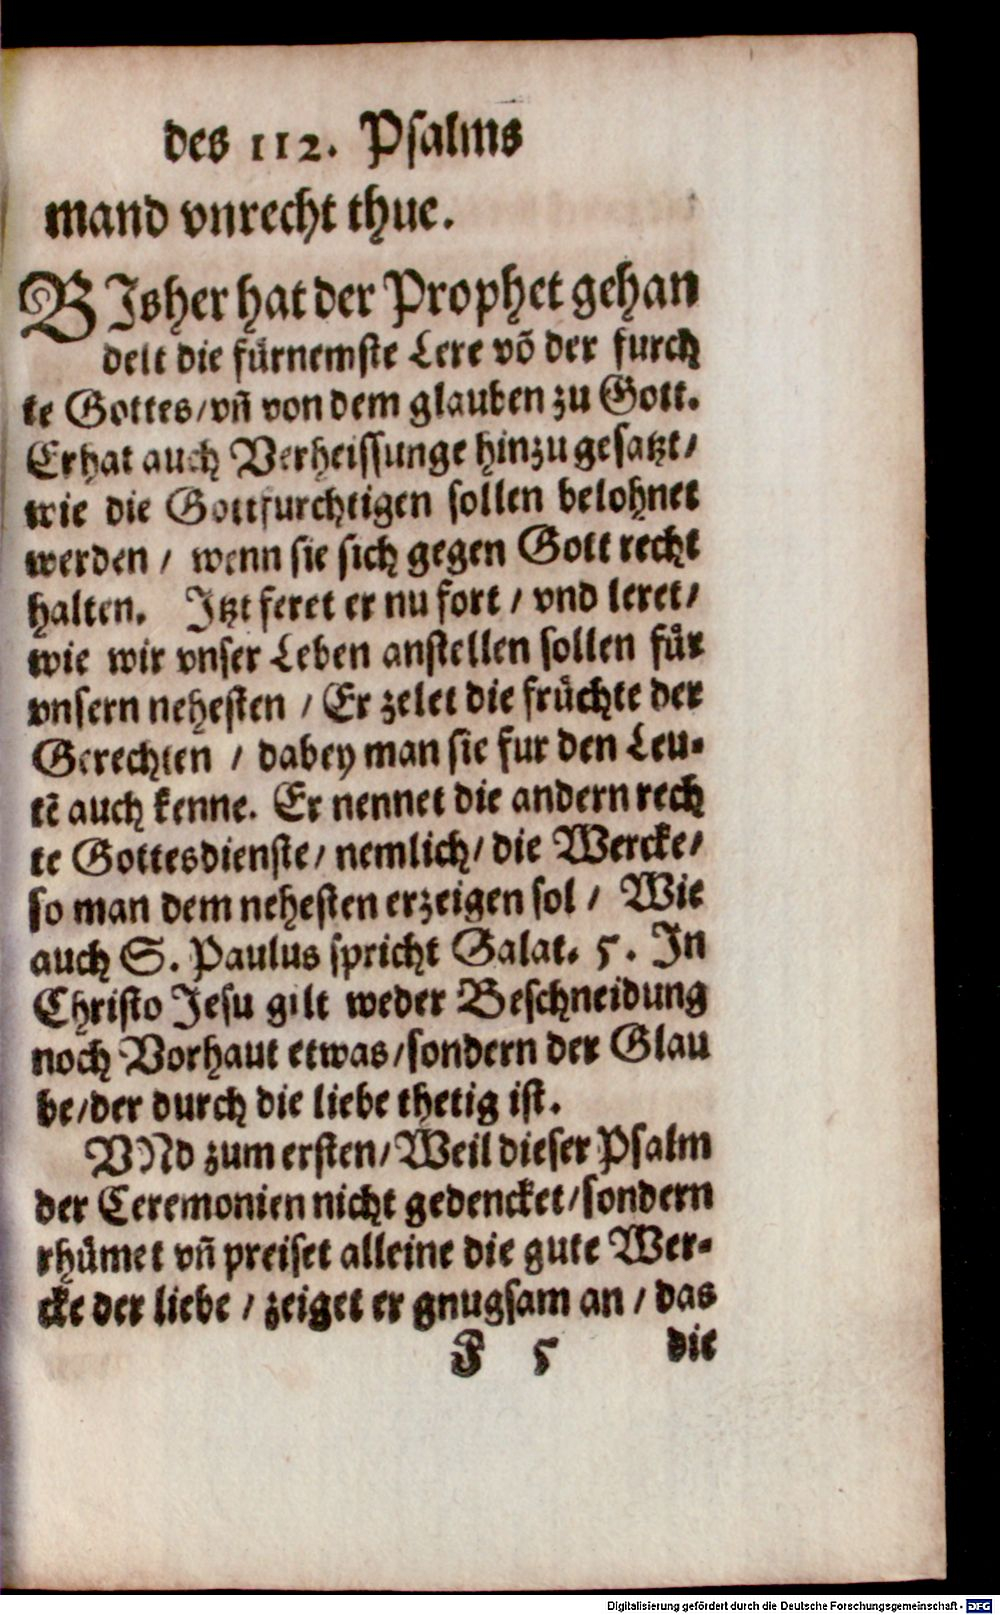 des 112. Psalms
mand vnrecht thue.
BIsher hat der Prophet gehan
delt die fürnemste Lere võ der furch
te Gottes/vñ von dem glauben zu Gott.
Er hat auch Verheissunge hinzu gesatzt/
wie die Gottfurchtigen sollen belohnet
werden / wenn sie sich gegen Gott recht
halten. Itzt feret er nu fort / vnd leret/
wie wir vnser Leben anstellen sollen fůr
vnsern nehesten / Er zelet die früchte der
Gerechten / dabey man sie fur den Leu-
tẽ auch kenne. Er nennet die andern rech
te Gottesdienste/ nemlich/ die Wercke/
so man dem nehesten erzeigen sol / Wie
auch S. Paulus spricht Galat. 5. In
Christo Jesu gilt weder Beschneidung
noch Vorhaut etwas/sondern der Glau
be/der durch die liebe thetig ist.
VNd zum ersten/Weil dieser Psalm
der Ceremonien nicht gedencket/sondern
rhümet vñ preiset alleine die gute Wer-
cke der liebe / zeiget er gnugsam an / das
F 5 die
Digitalisierung gefördert durch die Deutsche Forschungsgemeinschaft - DFG